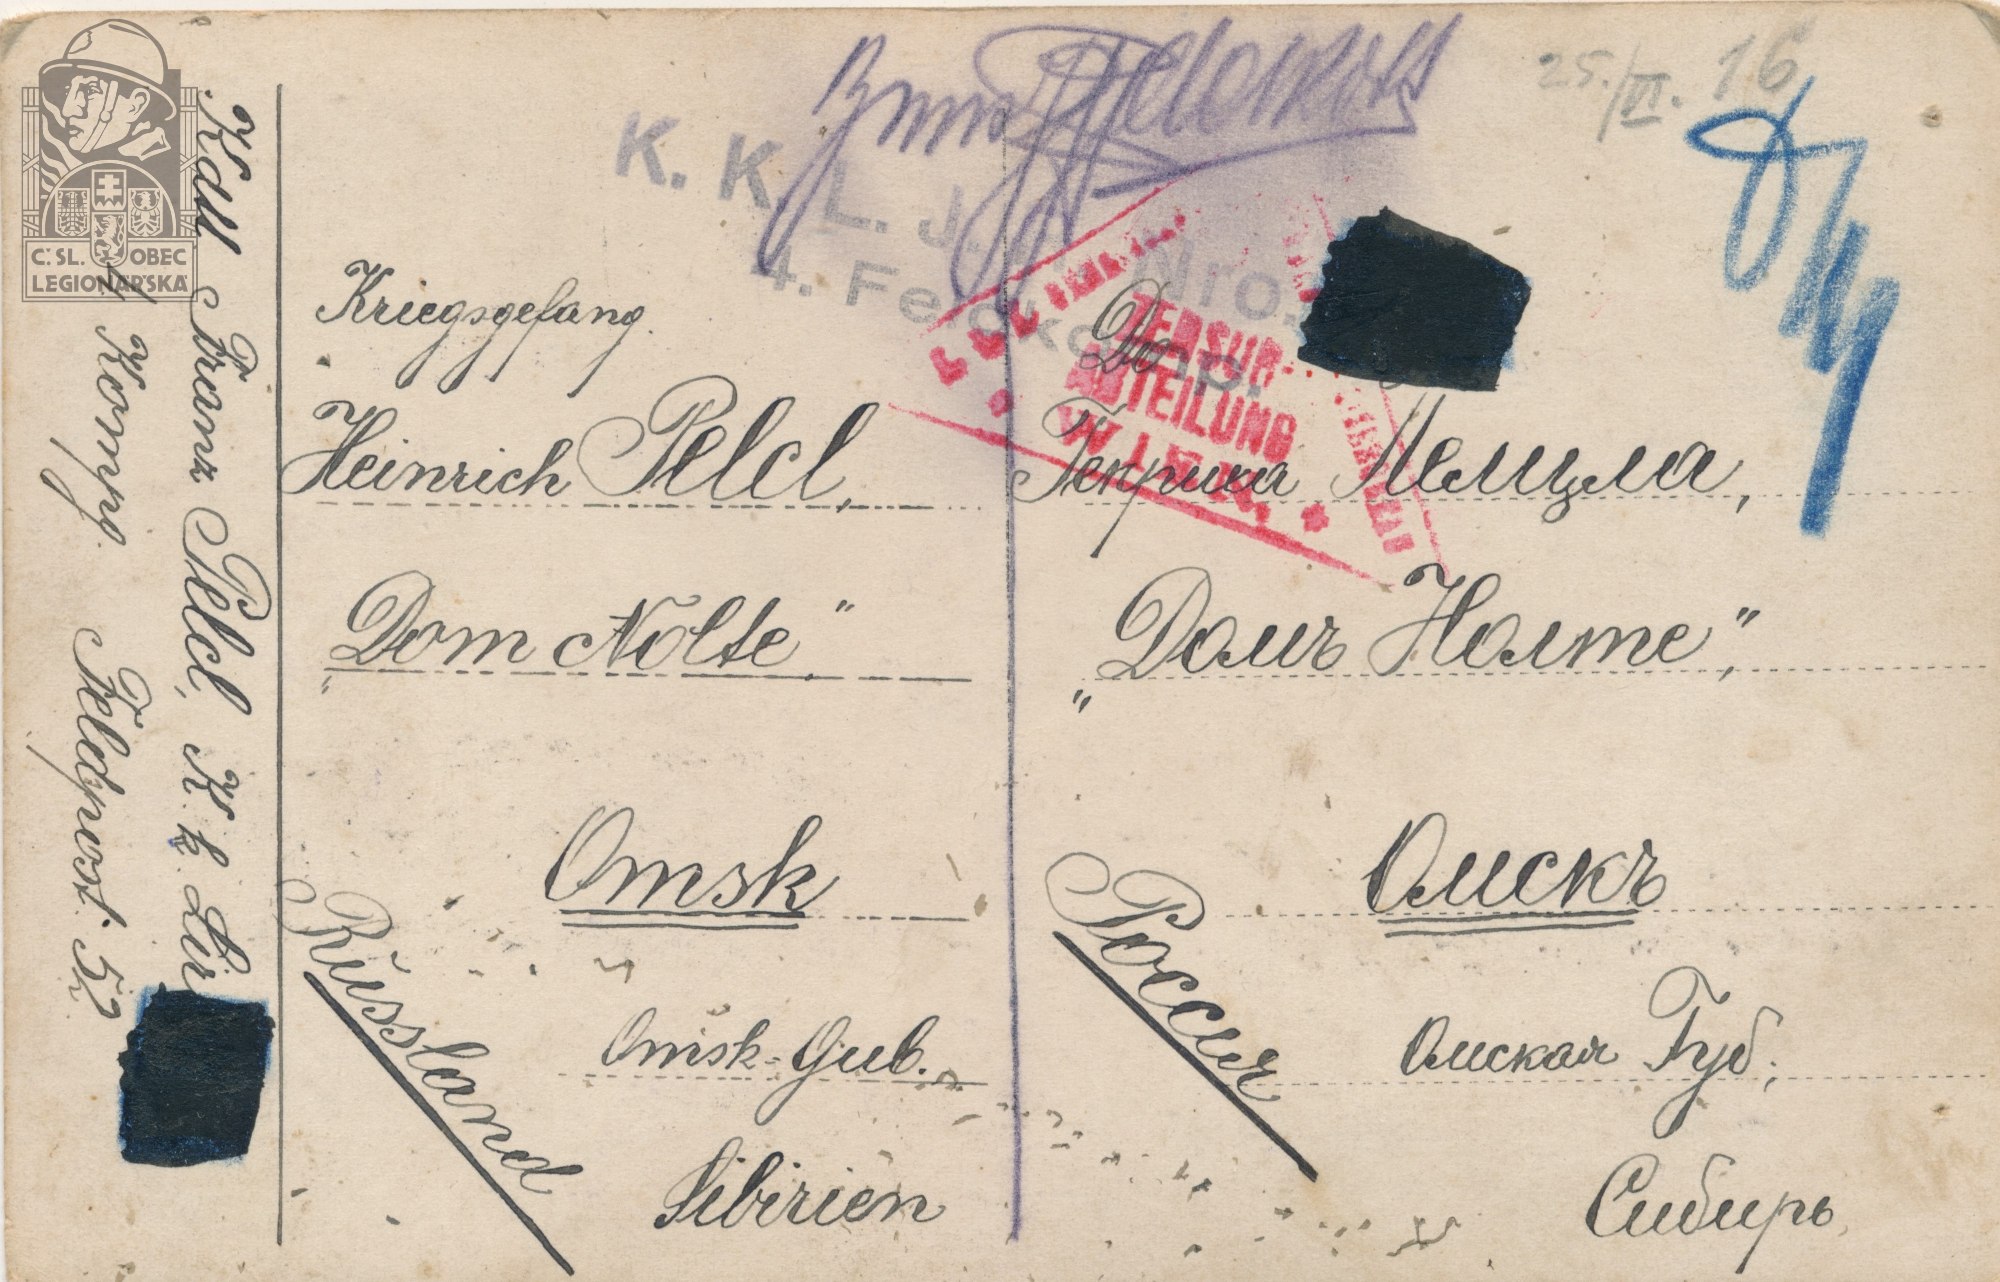 25./VI. 16
K. K. L. J. R. Nro.
4. Feldkomp.
ZENSUR-
ABTEILUNG
WIEN
Kriegsgefang.
Heinrich Pelcl,
"Dom Nolte"
Omsk
Omsk-Gub.
Sibirien
Russland
До
Генриха Пелцла,
"Домъ Нолте",
Омскъ
Омская Губ.
Сибирь
Россия
Kdtt Franz Pelcl, K. k. Lir
4 Komp. Feldpost. 52
Č. SL. OBEC
LEGIONÁŘSKÁ